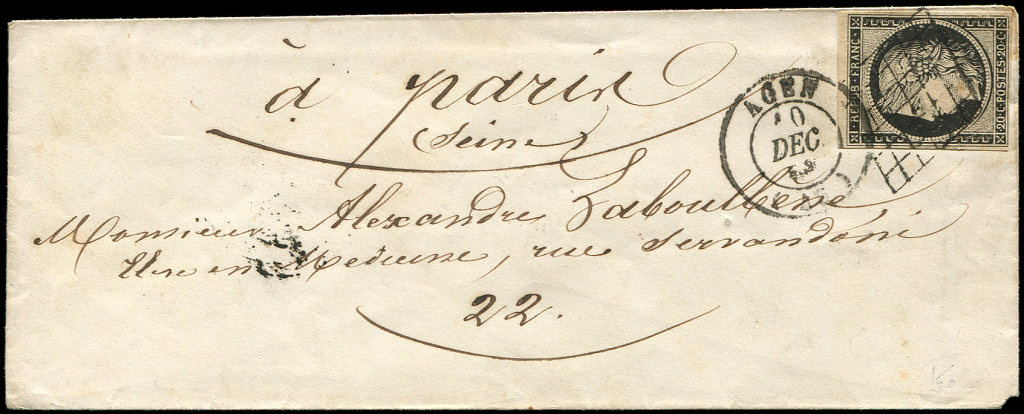 à Paris
(Seine)
Monsieur Alexandre Laboulbene
Elève en Médecine, rue Servandoni
22.
AGEN
10
DEC
REPUB. FRANC.
20.C.POSTES.20.C